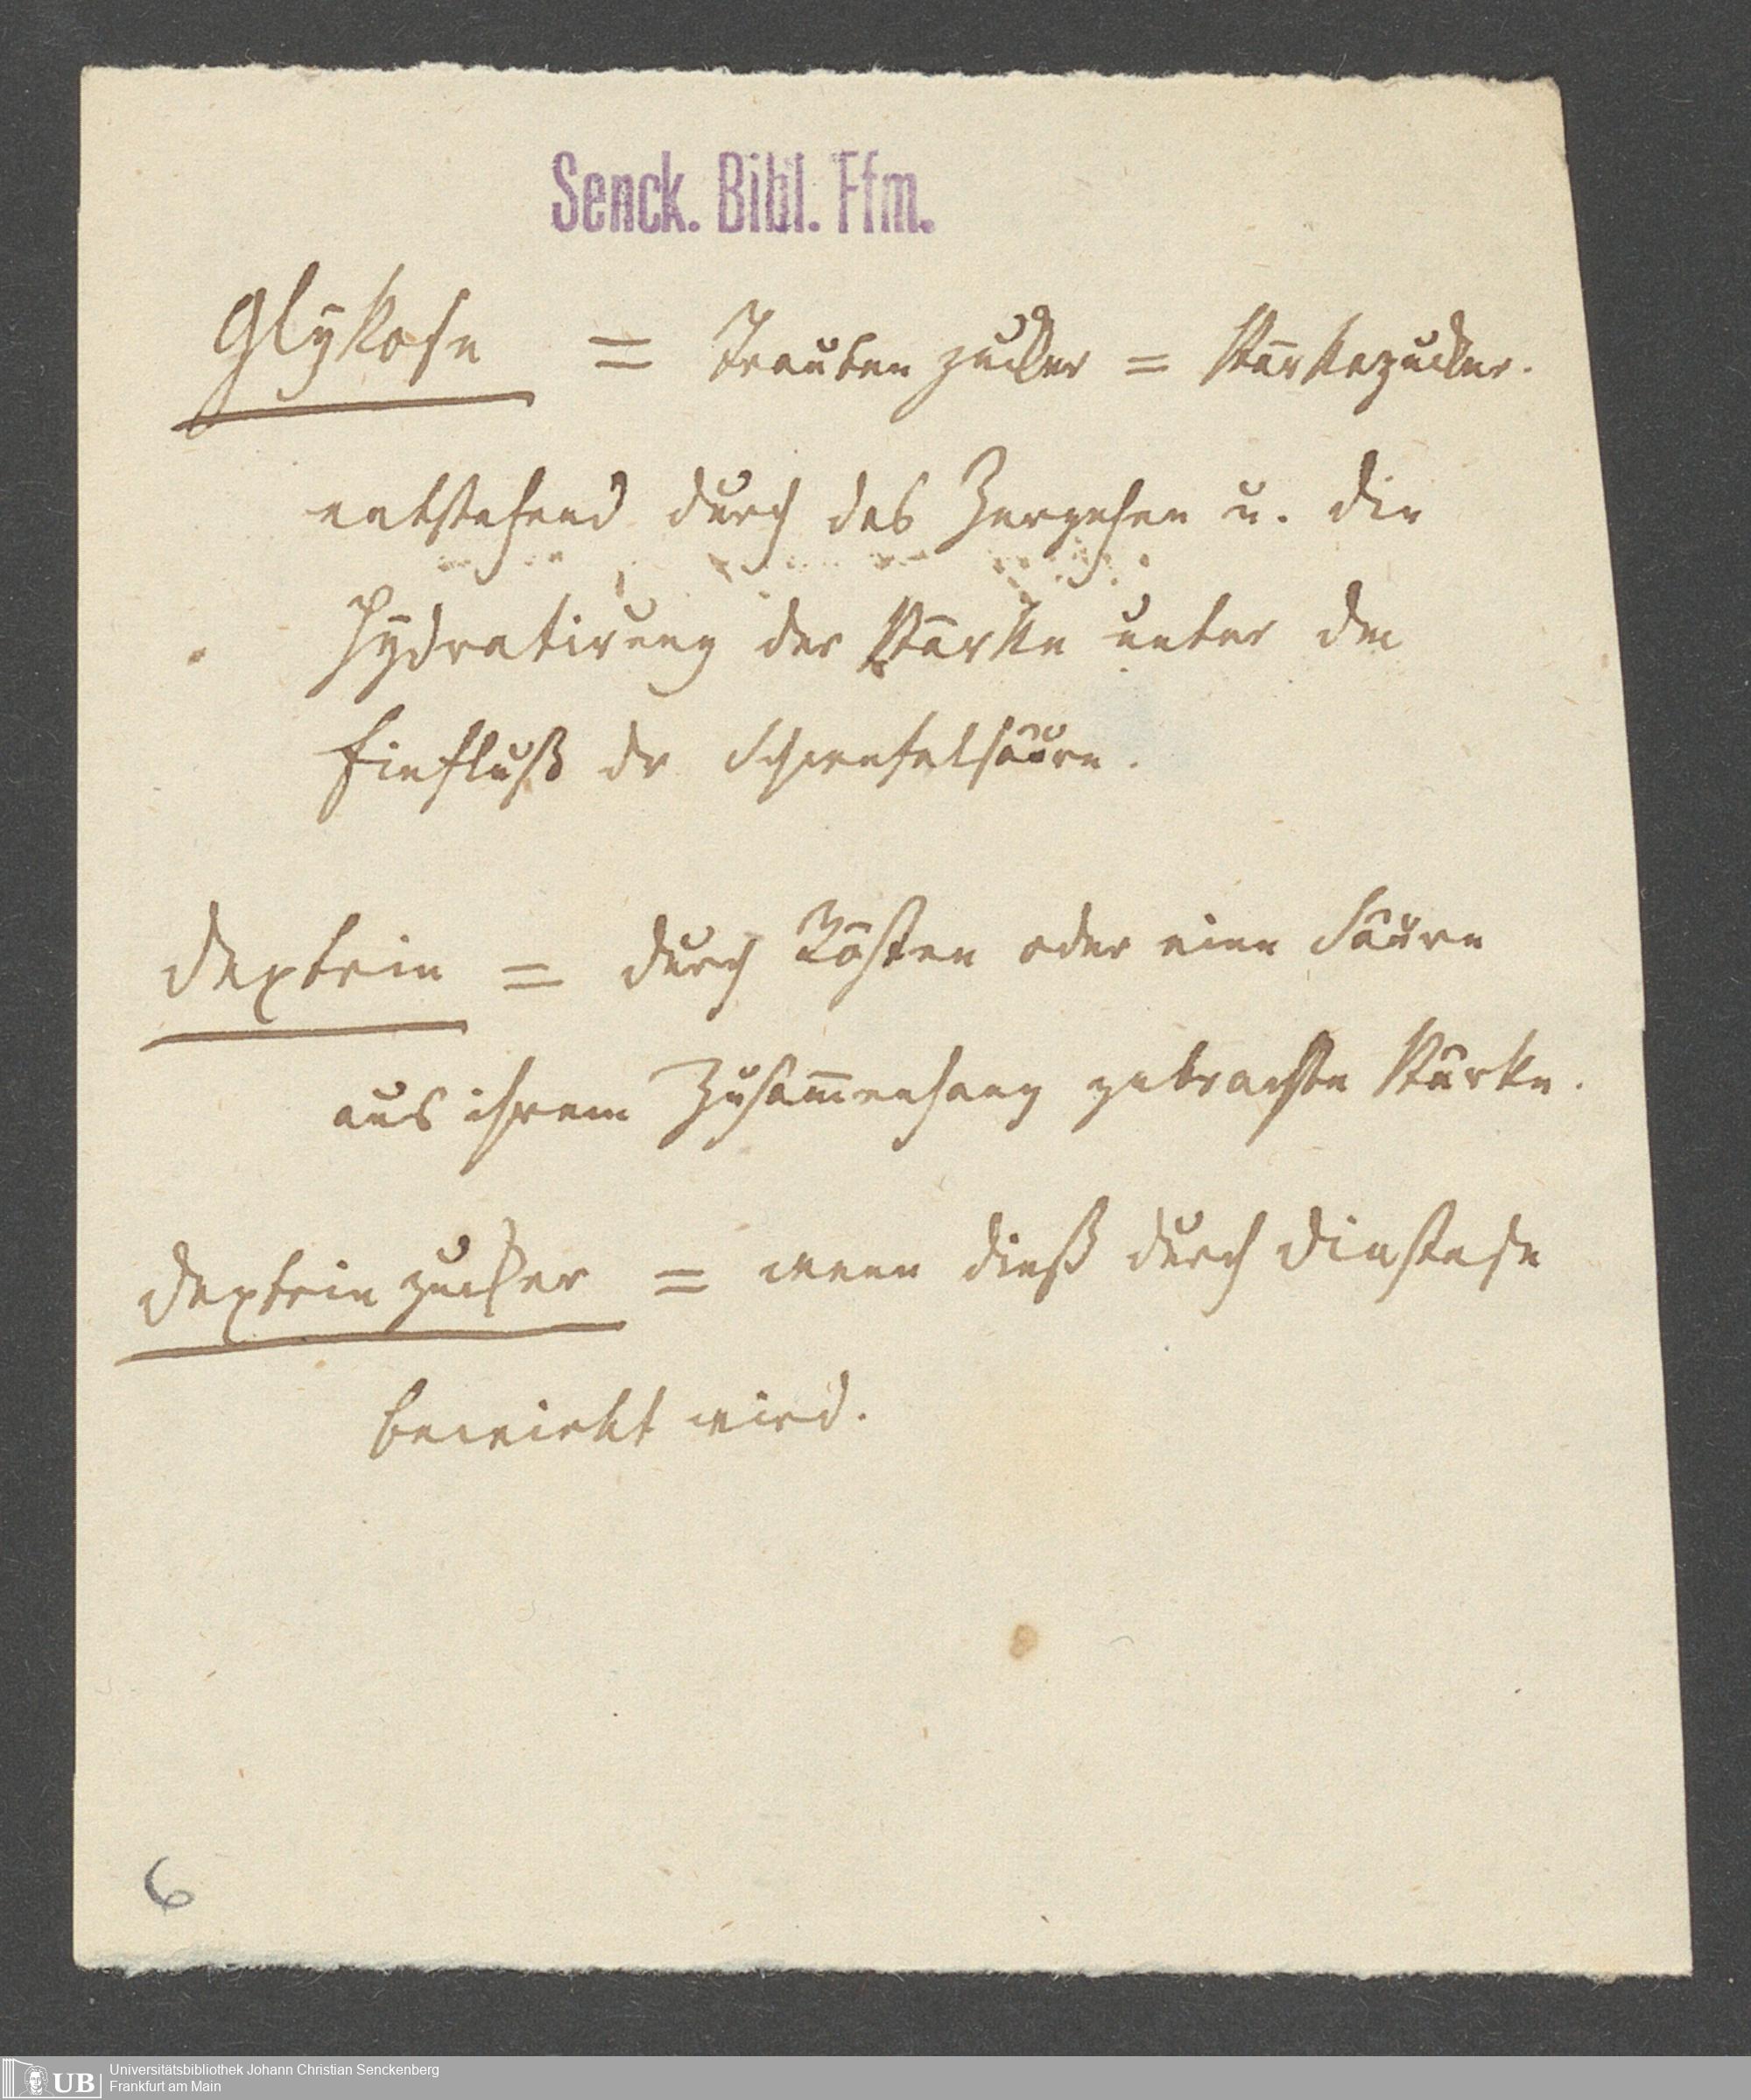 Senck. Bibl. Ffm.
Glykose = Traubenzucker = Stärkezucker.
entstehend durch das Zergehen u. die
Hydratirung der Stärke unter dem
Einfluß der Schwefelsäure.
Dextrin = durch Rösten oder eine Säure
aus ihrem Zusam̅enhang gebrachte Stärke.
Dextrinzucker = wenn dieß durch Diastase
bewirkt wird.
6
UB Universitätsbibliothek Johann Christian Senckenberg
Frankfurt am Main